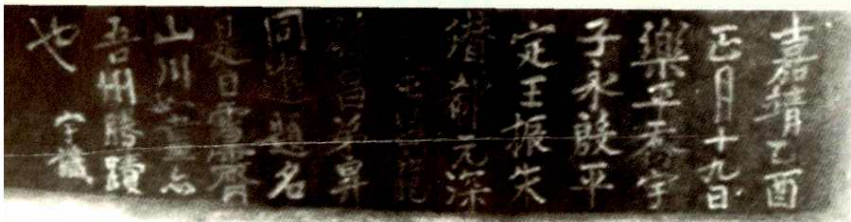 嘉靖乙酉
正月十九日
樂平喬宇
子永殷平
定王振朱
潛郝元深
昌弟
同遊題名
是日雪霽
山川如畫亦
吾州勝蹟
也 宇識